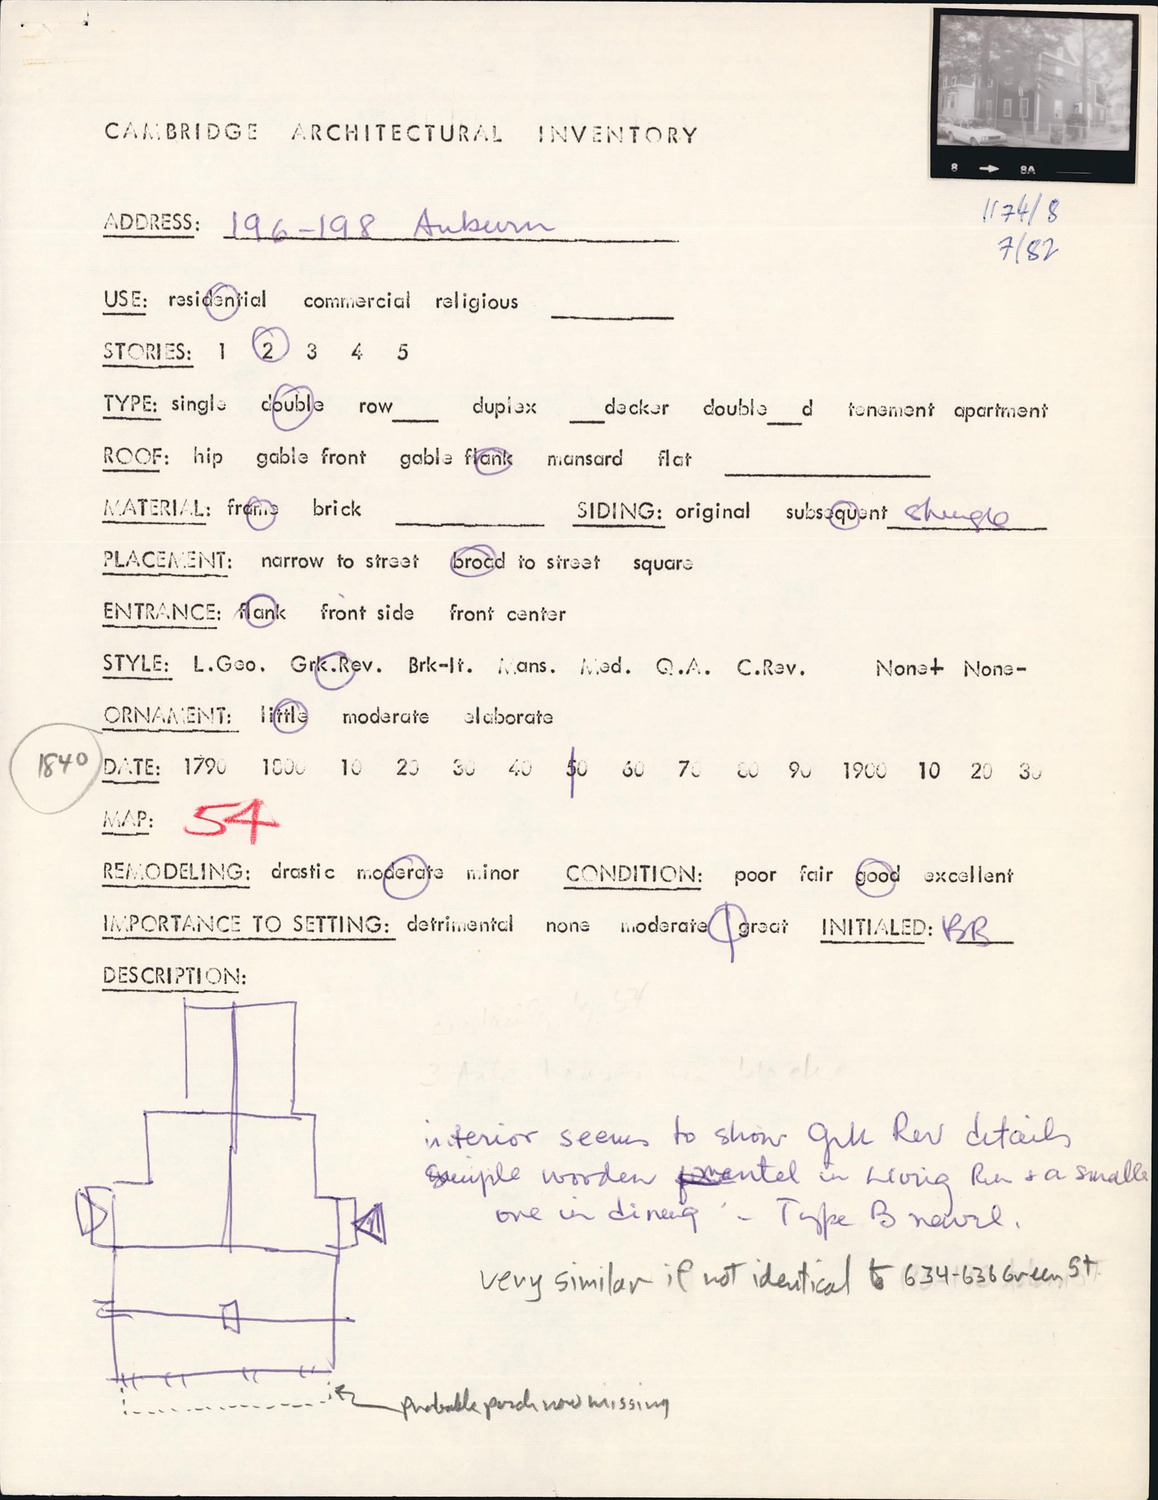 8 → 8A
CAMBRIDGE ARCHITECTURAL INVENTORY
1174/8
7/82
ADDRESS: 196-198 Auburn
USE: residential commercial religious
STORIES: 1 2 3 4 5
TYPE: single double row___ duplex ___decker double___d tenement apartment
ROOF: hip gable front gable flank mansard flat
MATERIAL: frame brick SIDING: original subsequent shingle
PLACEMENT: narrow to street broad to street square
ENTRANCE: flank front side front center
STYLE: L.Geo. Grk.Rev. Brk-It. Mans. Med. Q.A. C.Rev. None+ None-
ORNAMENT: little moderate elaborate
1840 DATE: 1790 1800 10 20 30 40 50 60 70 80 90 1900 10 20 30
MAP: 54
REMODELING: drastic moderate minor CONDITION: poor fair good excellent
IMPORTANCE TO SETTING: detrimental none moderate great INITIALED: BB
DESCRIPTION:
interior seems to show Grk Rev details
simple wooden mantel in Living Rm + a smaller
one in dining - Type B newel.
very similar if not identical to 634-636 Green St
probable porch now missing